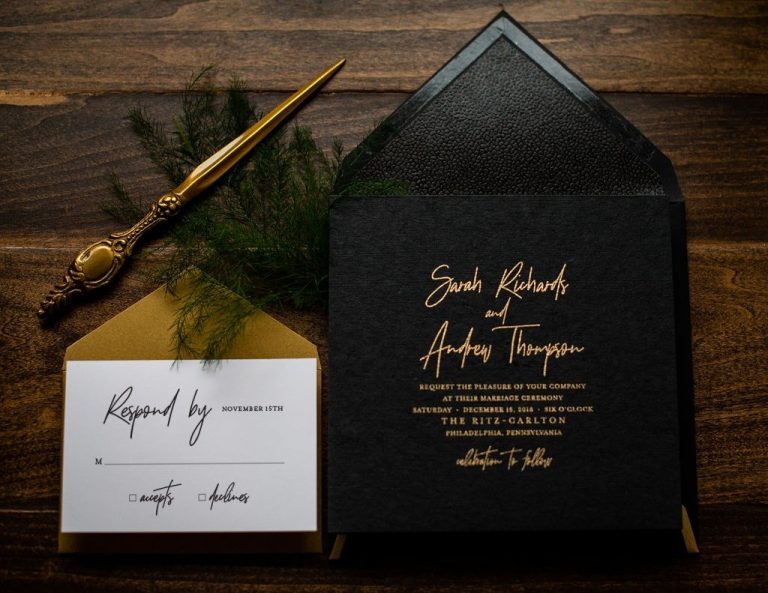 Respond by NOVEMBER 15TH
M
accepts declines
Sarah Richards
and
Andrew Thompson
REQUEST THE PLEASURE OF YOUR COMPANY
AT THEIR MARRIAGE CEREMONY
SATURDAY • DECEMBER 15, 2018 • SIX O'CLOCK
THE RITZ-CARLTON
PHILADELPHIA, PENNSYLVANIA
celebration to follow